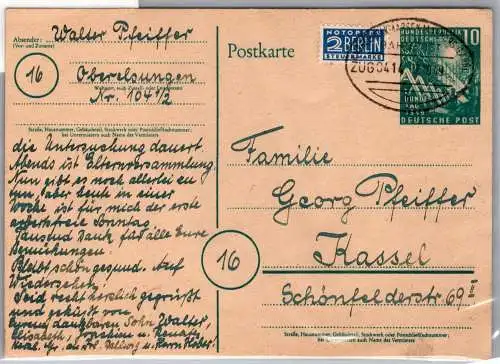 Absender:
Walter Pfeiffer
(Vor- und Zuname)
16
Oberelsungen
Nr. 104 1/2
Straße, Hausnummer, Gebäudeteil, Stockwerk oder Postschließfachnummer,
bei Untermietern auch Name des Vermieters
die Untersuchung dauert.
Abends ist Elternversammlung.
Nun gibt es noch allerlei zu
tun, aber heut in einer
Woche ist für mich der erste
arbeitsfreie Sonntag.
Tausend Dank für alle Eure
Bemühungen.
Bleibt schön gesund. Auf
Wiedersehen!
Seid recht herzlich gegrüßt
und geküßt von
Eurem dankbaren Sohn Walter,
Elisabeth, Joachim u.
Postkarte
NOTOPFER
2 BERLIN
STEUERMARKE
ZUG
BUNDESREPUBLIK
DEUTSCHLAND
10
DEUTSCHE POST
Familie
Georg Pfeiffer
16
Kassel
Schönfelderstr. 69 III
Straße, Hausnummer, Gebäudeteil, Stockwerk oder Postschließfachnummer,
bei Untermietern auch Name des Vermieters